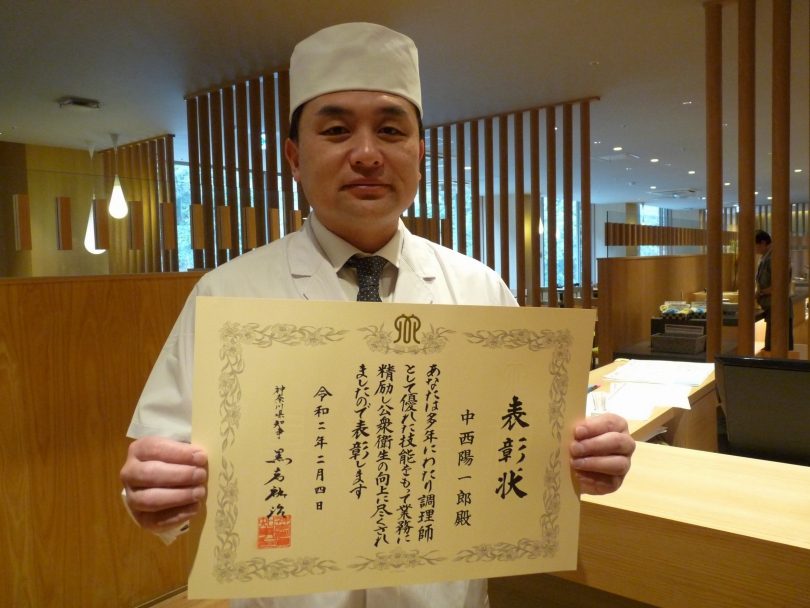 表彰状
中西陽一郎殿
あなたは多年にわたり調理師
として優れた技能をもって業務に
精励し公衆衛生の向上に尽くされ
ましたので表彰します
令和二年二月四日
神奈川県知事 黒岩祐治